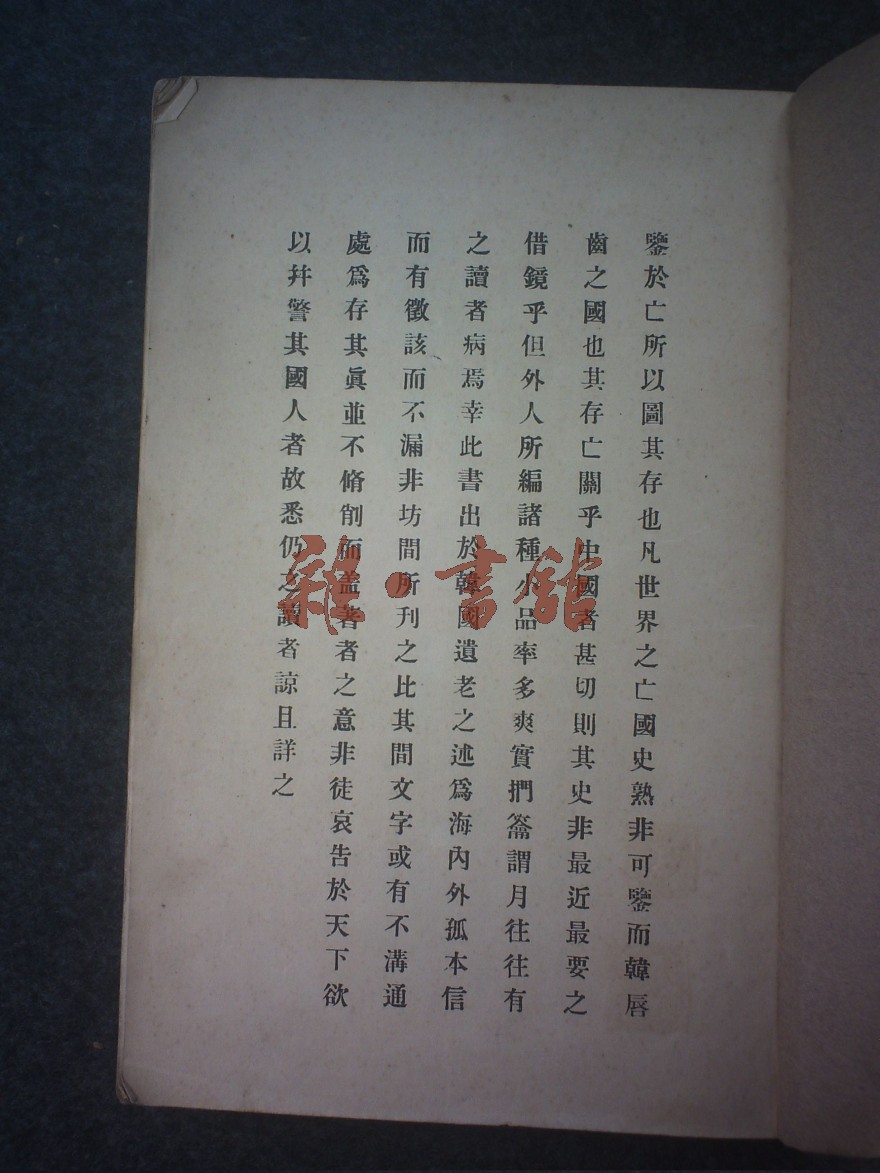 鑒於亡所以圖其存也凡世界之亡國史熟非可鑒而韓唇
齒之國也其存亡關乎中國者甚切則其史非最近最要之
借鏡乎但外人所編諸種小品率多爽實捫籥謂月往往有
之讀者病焉幸此書出於韓國遺老之述爲海內外孤本信
而有徵該而不漏非坊間所刊之比其間文字或有不溝通
處爲存其眞並不脩削而盖著者之意非徒哀告於天下欲
以幷警其國人者故悉仍之讀者諒且詳之
雜·書館